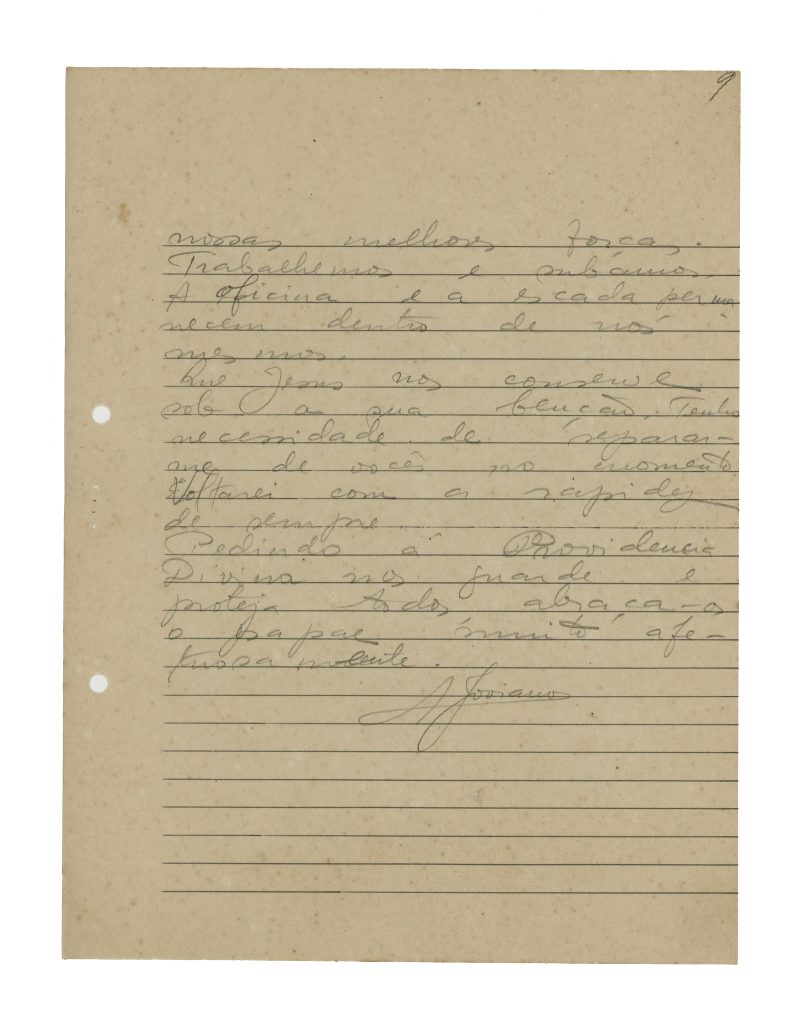 9
nossas melhores forças.
Trabalhemos e subamos.
A oficina e a escada perma
necem dentro de nós
mesmos.
Que Jesus nos conserve
sob a sua benção. Tenho
necessidade de separar-
me de vocês no momento.
Voltarei com a rapidez
de sempre.
Pedindo á Providencia
Divina nos guarde e
proteja todos abraça-os
o papae muito afe-
tuosamente.
A Joviano